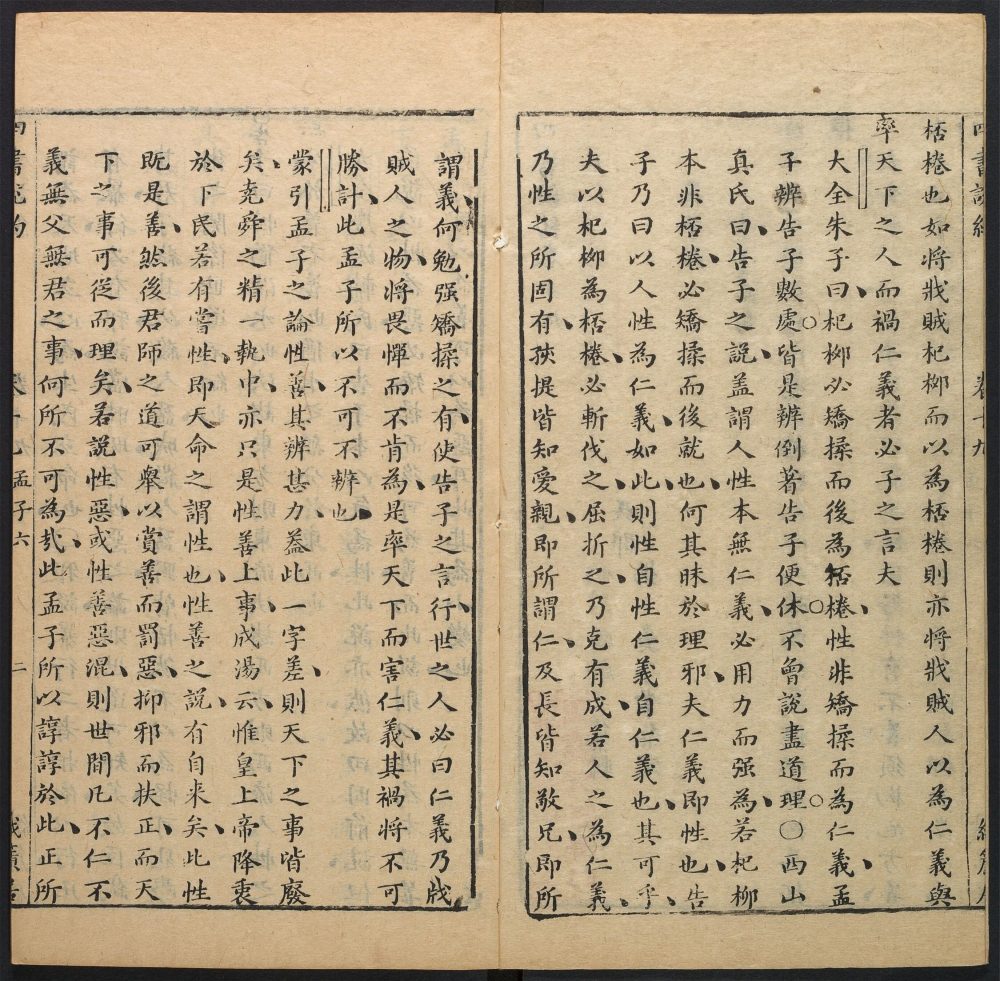 桮棬也如將戕賊杞桺而以為桮棬則亦將戕賊人以為仁義與
率天下之人而禍仁義者必子之言夫
大全朱子曰杞桺必矯揉而後為桮棬性非矯揉而為仁義孟
子辨告子數處皆是辨倒著告子便休不曾說盡道理〇西山
真氏曰告子之說盖謂人性本無仁義必用力而强為若杞柳
本非桮棬必矯揉而後就也何其昧於理邪夫仁義即性也告
子乃曰以人性為仁義如此則性自性仁義自仁義也其可乎
夫以杞桺為桮棬必斬伐之屈折之乃克有成若人之為仁義
乃性之所固有孩提皆知愛親即所謂仁及長皆知敬兄即所
謂義何勉强矯揉之有使告子之言行世之人必曰仁義乃戕
賊人之物將畏憚而不肯為是率天下而害仁義其禍將不可
勝計此孟子所以不可不辨也
蒙引孟子之論性善其辨甚力蓋此一字差則天下之事皆廢
矣堯舜之精一執中亦只是性善上事成湯云惟皇上帝降衷
於下民若有嘗性即天命之謂性也性善之說有自来矣此性
既是善然後君師之道可舉以賞善而罰惡抑邪而扶正而天
下之事可從而理矣若說性惡或性善惡混則世間凡不仁不
義無父無君之事何所不可為㢤此孟子所以諄諄於此正所
四書 孟子六 二